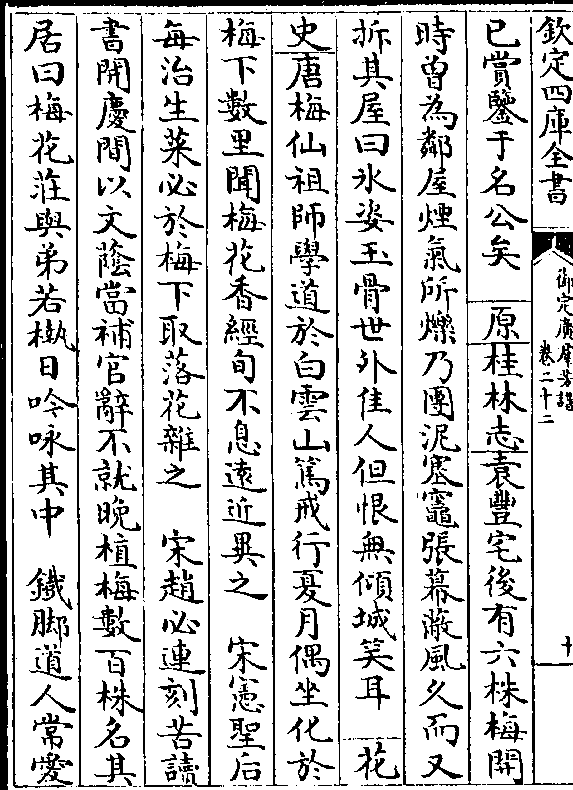 欽定四庫全書
御定廣羣芳譜
卷二十二
十
已賞鑒于名公矣　原桂林志袁豐宅後有六株梅開
時曾為鄰屋煙氣所爍乃團泥塞竈張幕蔽風久而又
拆其屋曰氷姿玉骨世外佳人但恨無傾城笑耳　花
史唐梅仙祖師學道於白雲山篤戒行夏月偶坐化於
梅下數里聞梅花香經旬不息遠近異之　宋憲聖后
每治生菜必於梅下取落花雜之　宋趙必連刻苦讀
書開慶間以文蔭當補官辭不就晚植梅數百株名其
居曰梅花莊與弟若槸日吟咏其中　鐵脚道人常愛